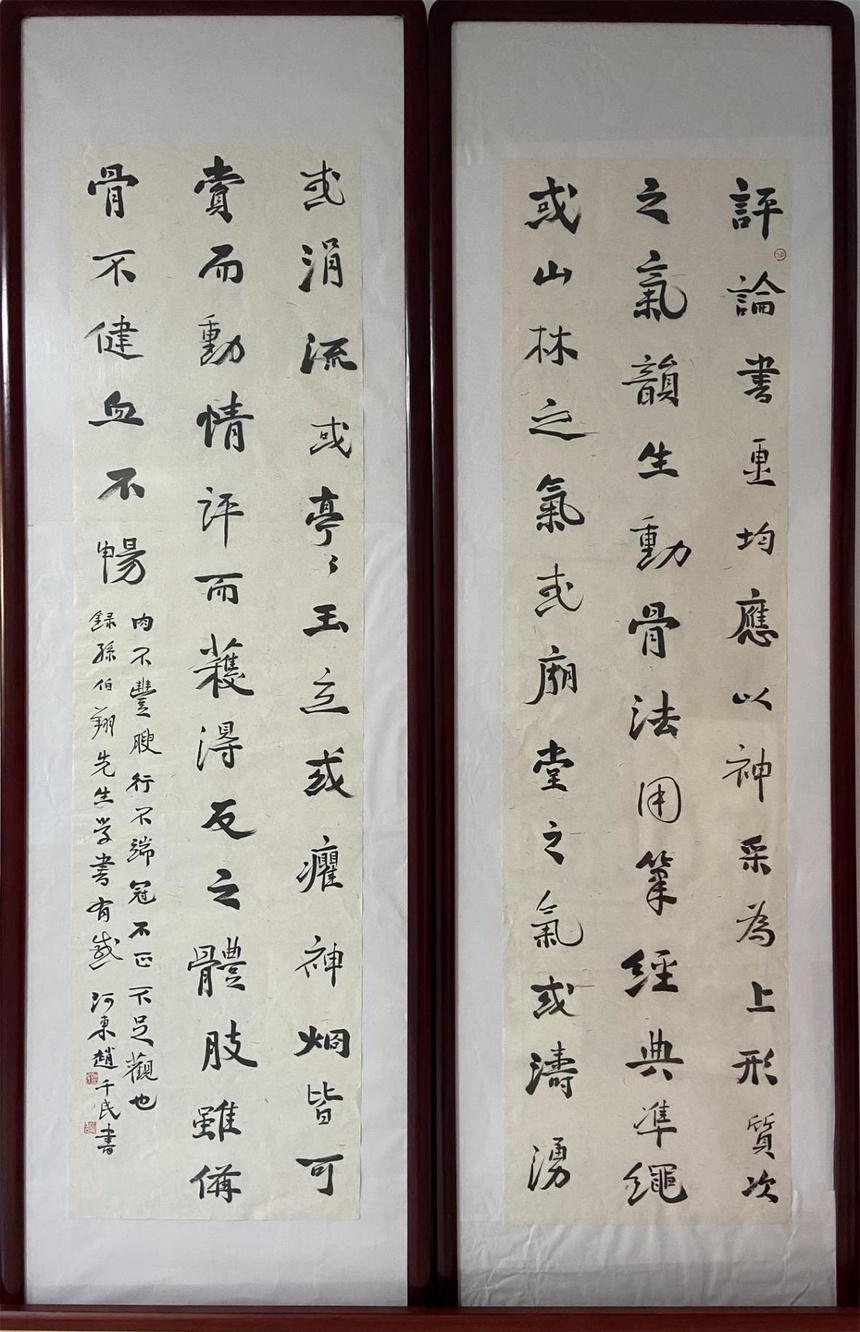 評論書画均應以神采為上形質次
之氣韻生動骨法用筆經典準繩
或山林之氣或廟堂之氣或濤湧
或涓流或亭〻玉立或癯神烟皆可
賞而動情評而獲得反之體肢雖備
骨不健血不暢
肉不豐腴行不端冠不正不足觀也
録孫伯翔先生学書有感 河東趙千民書